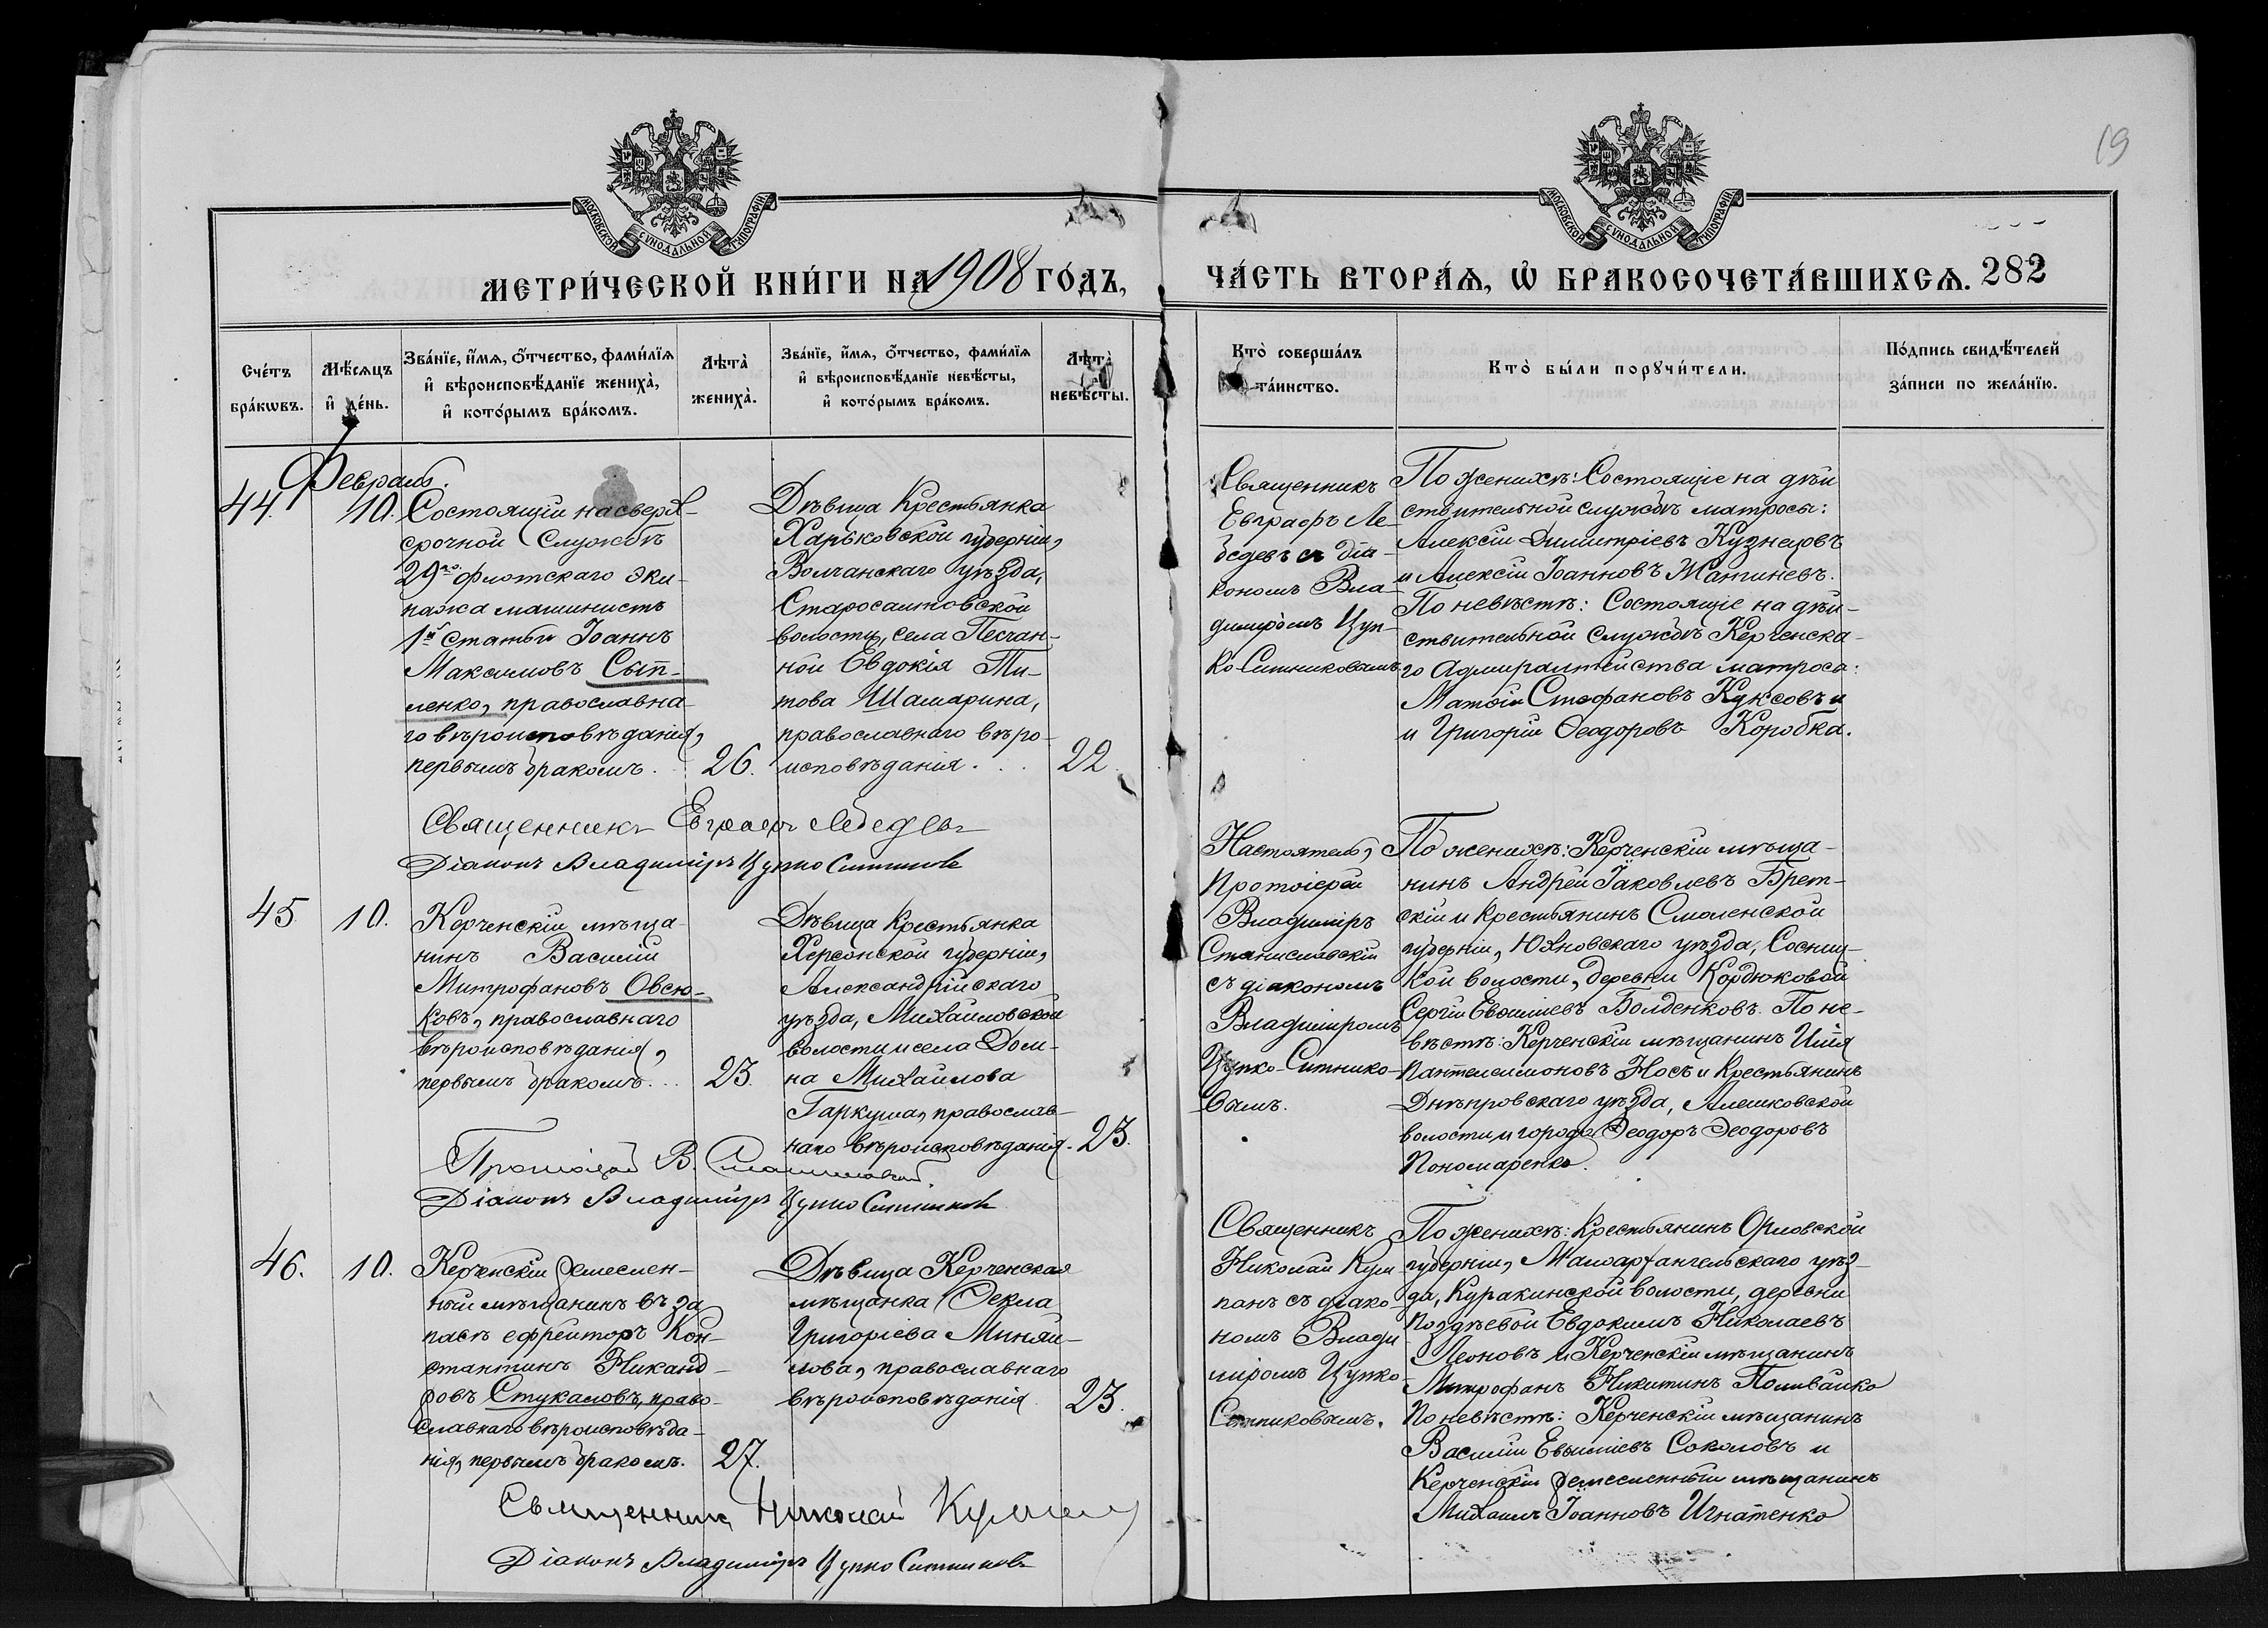 19
МОСКОВСКОЙ СѴНОДАЛЬНОЙ ТИПОГРАФІИ
МОСКОВСКОЙ СѴНОДАЛЬНОЙ ТИПОГРАФІИ
МЕТРИ́ЧЕСКОЙ КНИ́ГИ НА 1908 ГО́ДЪ,
ЧА́СТЬ ВТОРА́Ѧ, Ѽ БРАКОСОЧЕТА́ВШИХСѦ. 282
Сче́тъ
бра́кѡвъ.
Мѣ́сѧцъ
и҆ де́нь.
Зва́нїе, и҆́мѧ, ѻ҆́тчество, фами́лїѧ
и҆ вѣроисповѣ́данїе жениха̀,
и҆ кото́рымъ бра́комъ.
Лѣта̀
жениха̀.
Зва́нїе, и҆́мѧ, ѻ҆́тчество, фами́лїѧ
и҆ вѣроисповѣ́данїе невѣ́сты,
и҆ кото́рымъ бра́комъ.
Лѣта̀
невѣ́сты.
Кто̀ соверша́лъ
та́инство.
Кто̀ бы́ли порꙋчи́тели.
По́дпись свидѣ́телей
за́писи по жела́нїю.
Февраль.
44.
10.
Состоящій на сверх-
срочной службѣ
29го флотскаго эки-
пажа машинистъ
1й статьи Іоаннъ
Максимовъ Сып-
ленко, православна-
го вѣроисповѣданія,
первымъ бракомъ.
26.
Дѣвица Крестьянка
Харьковской губерніи,
Волчанскаго уѣзда,
Старосалтовской
волости, села Песчан-
ной Евдокія Ти-
това Шамарина,
православнаго вѣро-
исповѣданія
22
Священникъ
Евграфъ Ле-
бедевъ съ діа-
кономъ Вла-
димiромъ Цуп-
ко-Ситниковымъ
По женихѣ: Состоящіе на дѣй
ствительной службѣ матросы:
Алексій Димитріевъ Кузнецовъ
и Алексій Іоанновъ Мантиневъ.
По невѣстѣ: Состоящіе на дѣй-
ствительной службѣ Керченска-
го Адмиралтейства матроса:
Матѳій Стефановъ Куксовъ и
и Григорій Ѳеодоровъ Коробка.
Священникъ Евграфъ Лебедевъ
Діаконъ Владиміръ Цупко Ситниковъ
45
10.
Керченскій мѣща-
нинъ Василій
Митрофановъ Овсю-
ковъ, православнаго
вѣроисповѣданія,
первымъ бракомъ.
23.
Дѣвица Крестьянка
Херсонской губерніи,
Александрійскаго
уѣзда, Михайловской
волости и села Дом-
на Михайлова
Гаркуша, православ-
наго вѣроисповѣданія.
23.
Настоятель,
Протоіерей
Владиміръ
Станиславскій
съ діакономъ
Владиміромъ
Цупко-Ситнико-
вымъ.
По женихѣ: Керченскій мѣща-
нинъ Андрей Іаковлевъ Брет-
скій и Крестьянинъ Смоленской
губерніи, Юхновскаго уѣзда, Сосниц-
кой волости, деревни Кордюковой
Сергій Евѳиміевъ Болденковъ. По не-
вѣстѣ: Керченскій мѣщанинъ Илія
Пантелеимоновъ Носъ и Крестьянинъ
Днѣпровскаго уѣзда, Алешковской
волости и города Ѳеодоръ Ѳеодоровъ
Пономаренко.
Протоіерей В. Станиславскій
Діаконъ Владиміръ Цупко Ситниковъ
46.
10.
Керченскій ремеслен-
ный мѣщанинъ въ за
пасѣ ефрейторъ Кон-
стантинъ Никанд-
ровъ Стукаловъ, право-
славнаго вѣроисповѣда-
нія, первымъ бракомъ.
27.
Дѣвица Керченская
мѣщанка Ѳекла
Григоріева Миняй-
лова, православнаго
вѣроисповѣданія
23.
Священникъ
Николай Кум-
панъ съ діако-
номъ Влади
міромъ Цупко-
Ситниковымъ.
По женихѣ: Крестьянинъ Орловской
губерніи, Малоархангельскаго уѣз-
да, Куракинской волости, деревни
Поздѣевой Евдокимъ Николаевъ
Леоновъ и Керченскій мѣщанинъ
Митрофанъ Никитинъ Поливайко
По невѣстѣ: Керченскій мѣщанинъ
Василій Евѳиміевъ Соколовъ и
Керченскій ремесленный мѣщанинъ
Михаилъ Іоанновъ Игнатенко
Священникъ Николай Кумпанъ
Діаконъ Владиміръ Цупко Ситниковъ